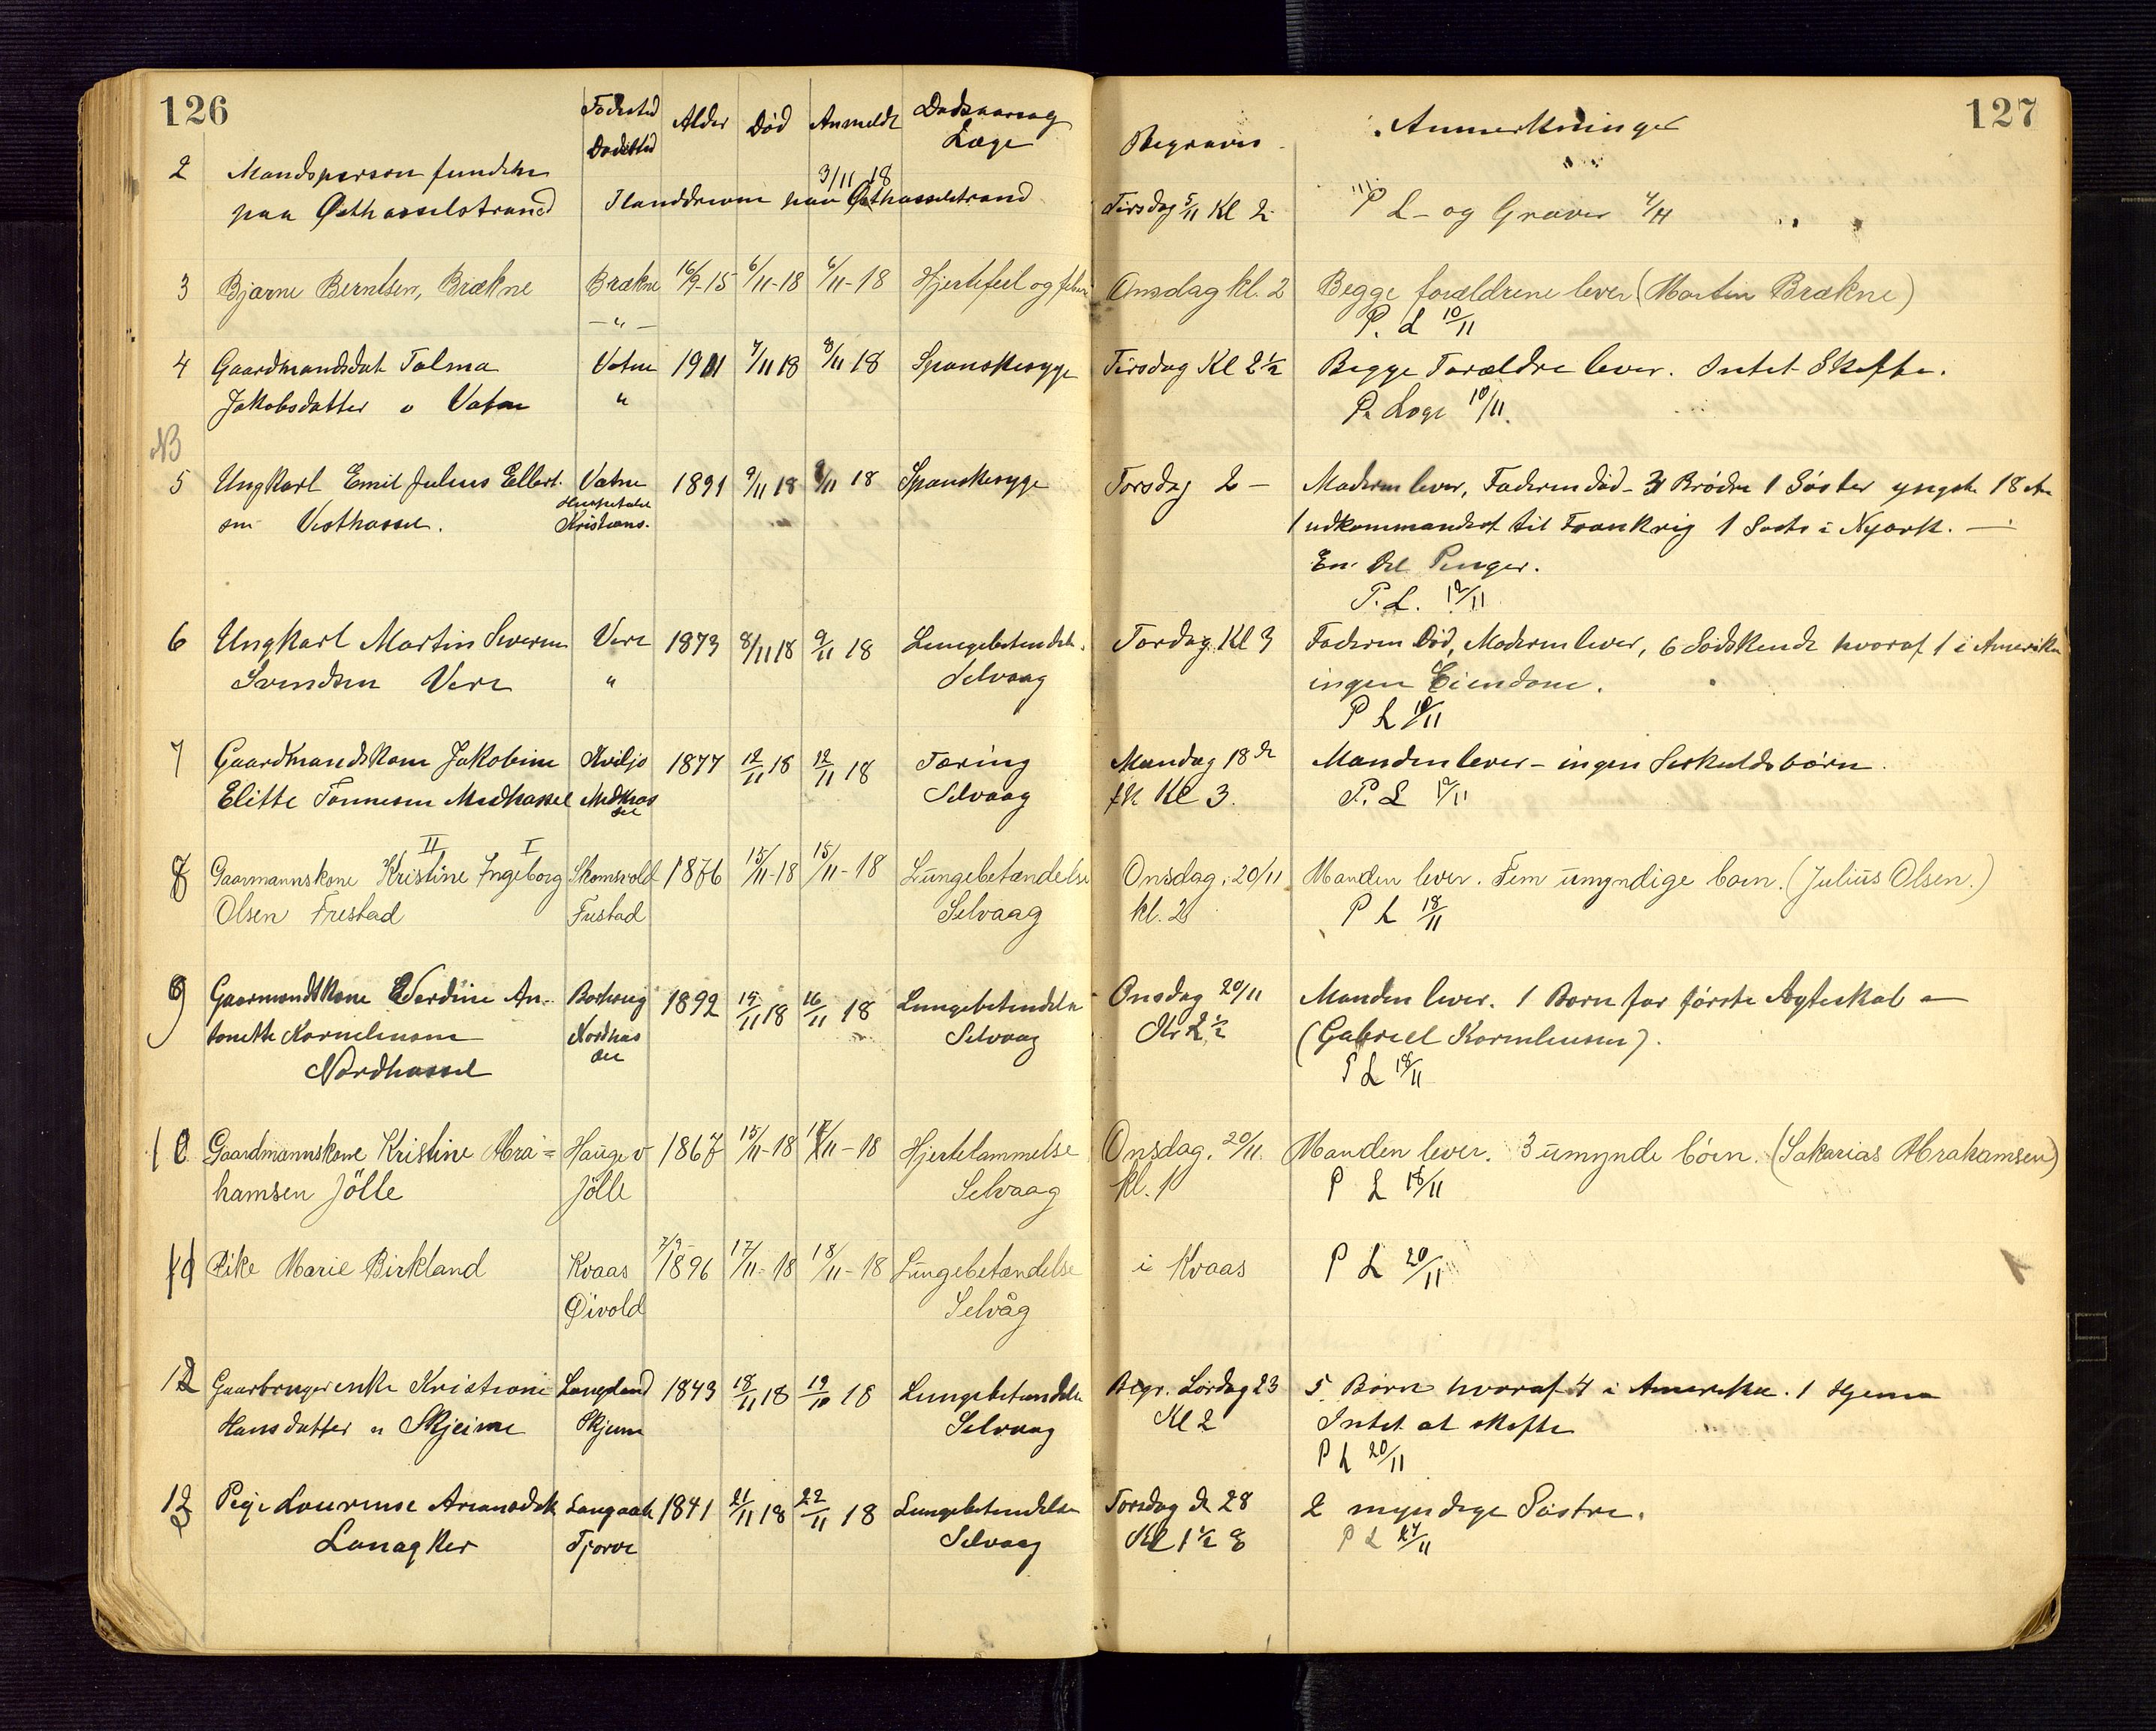 126
Fødested Alder Død Anmeldt Dødsaarsag
Dødssted Læge
2 Mandsperson funden 3/11 18
paa Østhasselstrand Ilanddreven paa Østhasselstrand
3 Bjarne Berntsen, Brækne Brækne 16/9-15 6/11-18 6/11-18 Hjertefeil og
— " —
4 Gaardmandsdat Talma Vatne 1901 7/11 18 8/11 18 Spanskesyge
Jakobsdatter o Vatne "
NB
5 Ungkarl Emil Julius Ellert- Vatne 1891 9/11 18 9/11 18 Spanskesyge
sen Vesthassel. Kristians.
6 Ungkarl Martin Severin Vere 1873 8/11 18 9/11 18 Lungebetendelse.
Svendsen Vere " Selvaag
7 Gaardmandskone Jakobine Kviljo 1877 12/11 18 12/11 18 Tæring
Elitte Tønnesen Midhassel Midhas Selvaag
sel
II I
8 Gaarmannskone Kristine Ingeborg Skomsvold 1876 15/11-18 15/11-18 Lungebetændelse
Olsen Frestad Frestad Selvaag
9 Gaarmandskone Verdine An- Borhaug 1892 15/11 18 16/11 18 Lungebetendelse
tonette Korneliusen Nordhas Selvaag
Nordhassel sel
10 Gaardmannskone Kristine Abra= Hauge v 1867 15/11-18 17/11-18 Hjertelammelse
hamsen Jölle Jölle Selvaag
7/9-
11 Pike Marie Birkland Kvaas 1896 17/11-18 18/11-18 Lungebetændelse
Øivold Selvåg
12 Gaarbrugerenke Kristiane Langeland 1843 18/11 18 19/10 18 Lungebetendelse
Hansdatter " Skjeime Skjeime Selvaag
13 Pige Lourense Ariansdat Langaak 1841 21/11 18 22/11 18 Lungebetendelse
Langaker Tjørve Selvaag
127
Begraves Anmerkninger
Tirsdag 5/11 Kl 2 P L- og Graver 4/11
Onsdag kl. 2 Begge forældrene lever (Martin Brækne)
P. L 10/11
Tirsdag Kl 2½ Begge Forældre lever. Intet Skifte.
P. Loge 10/11.
Torsdag 2 — Moderen lever, Faderen død - 3 Brødre 1 Søster yngste 18 Aar
1 udkommandert til Frankrig 1 Søster i Nyork. —
En Del Penger.
P. L. 12/11
Torsdag Kl 3 Faderen Død, Moderen lever, 6 Sødskende hvoraf 1 i Amerika
ingen Eiendom.
P L 10/11
Mandag 18de Manden lever - ingen Serkuldsbørn.
Kl 3. P. L
Onsdag. 20/11 Manden lever. Fem umyndige born. (Julius Olsen.)
kl. 2 P L 18/11
Onsdag 20/11 Manden lever. 1 Barn før første Ægteskab —
Kl 2½ (Gabriel Korneliusen).
P L 18/11
Onsdag. 20/11 Manden lever. 3 umynde börn. (Sakarias Abrahamsen)
kl. 1 P L 18/11
i Kvaas P L 20/11
Begr. Lørdag 23 5 Børn hvoraf 4 i Amerika. 1 Hjemme
Kl 2 Intet at skifte
P L 20/11
Torsdag d 28 2 myndige Søstre.
Kl 1½ P L 27/11